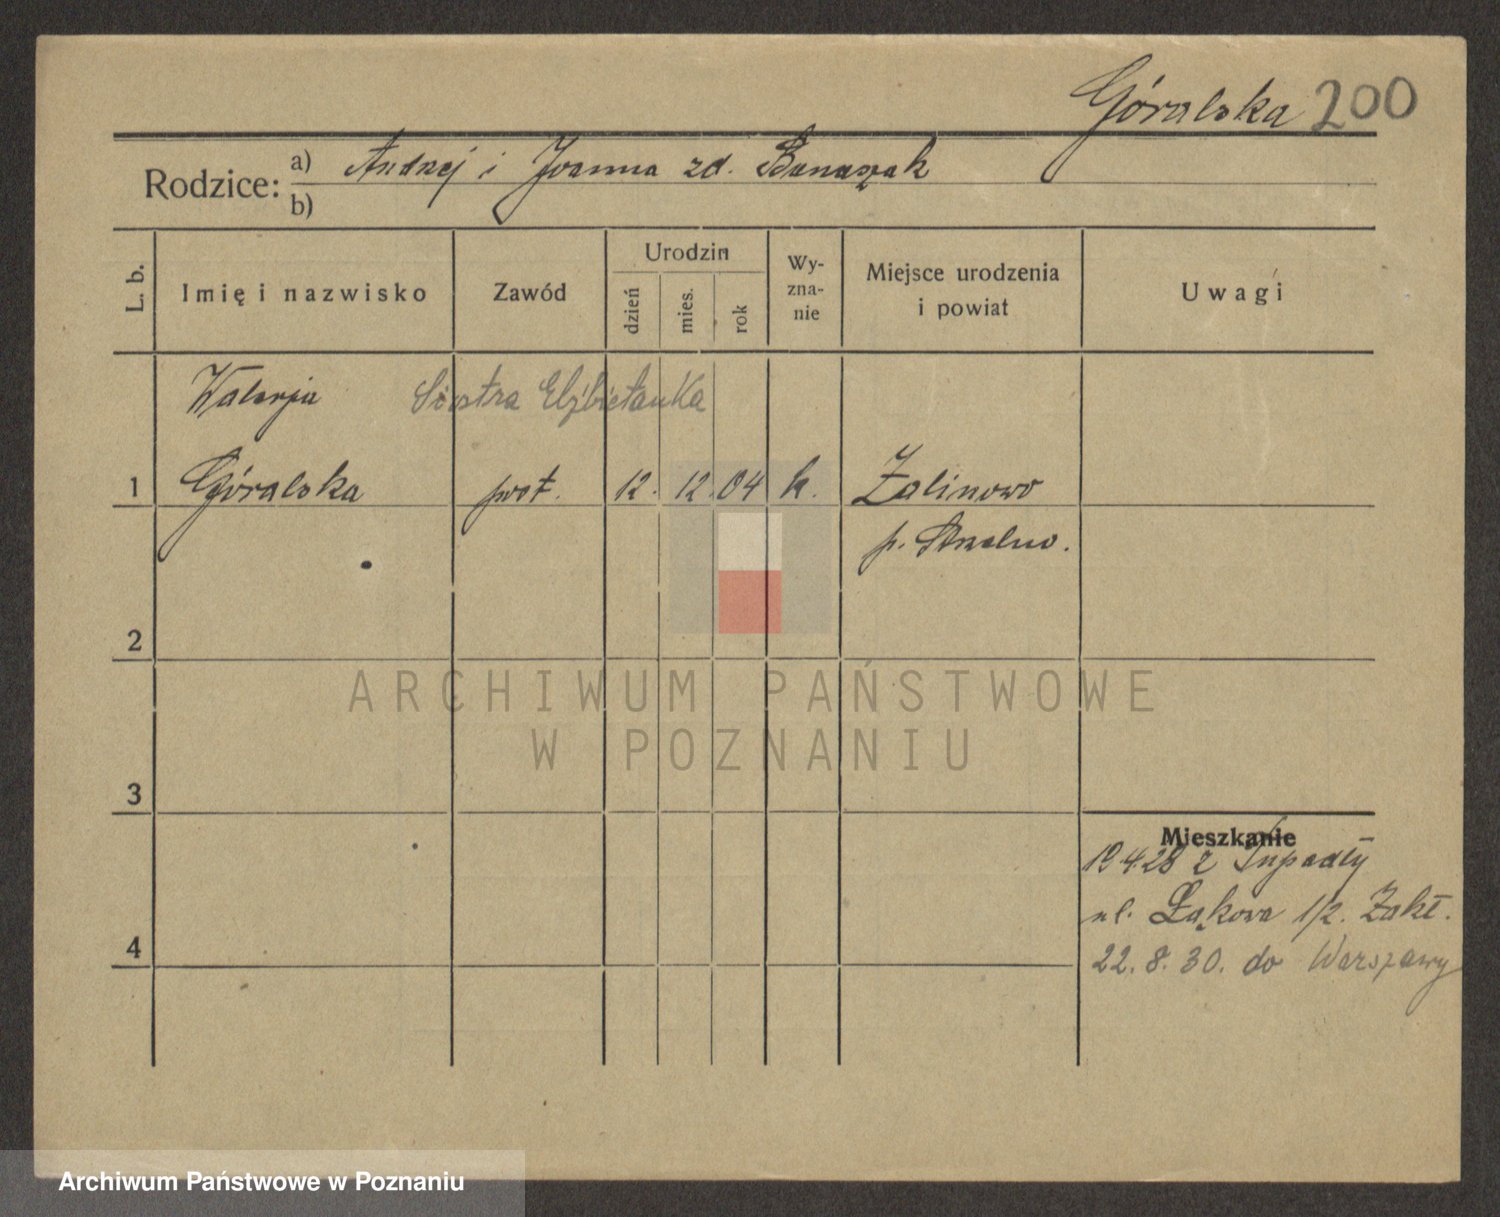 Góralska 200
Rodzice: a) Andrzej i Joanna zd. Banaszak
b)
L. b. Imię i nazwisko Zawód Urodzin dzień mies. rok Wy-zna-nie Miejsce urodzenia i powiat Uwagi
Walerja Siostra Elżbietanka
1 Góralska post. 12. 12. 04 k. Zalinowo
p. Strzelno.
2
ARCHIWUM PAŃSTWOWE
W POZNANIU
3
Mieszkanie
19.4.28 z Tupadły
ul. Łąkowa 1/2. Zakł.
4
22. 8. 30. do Warszawy
Archiwum Państwowe w Poznaniu